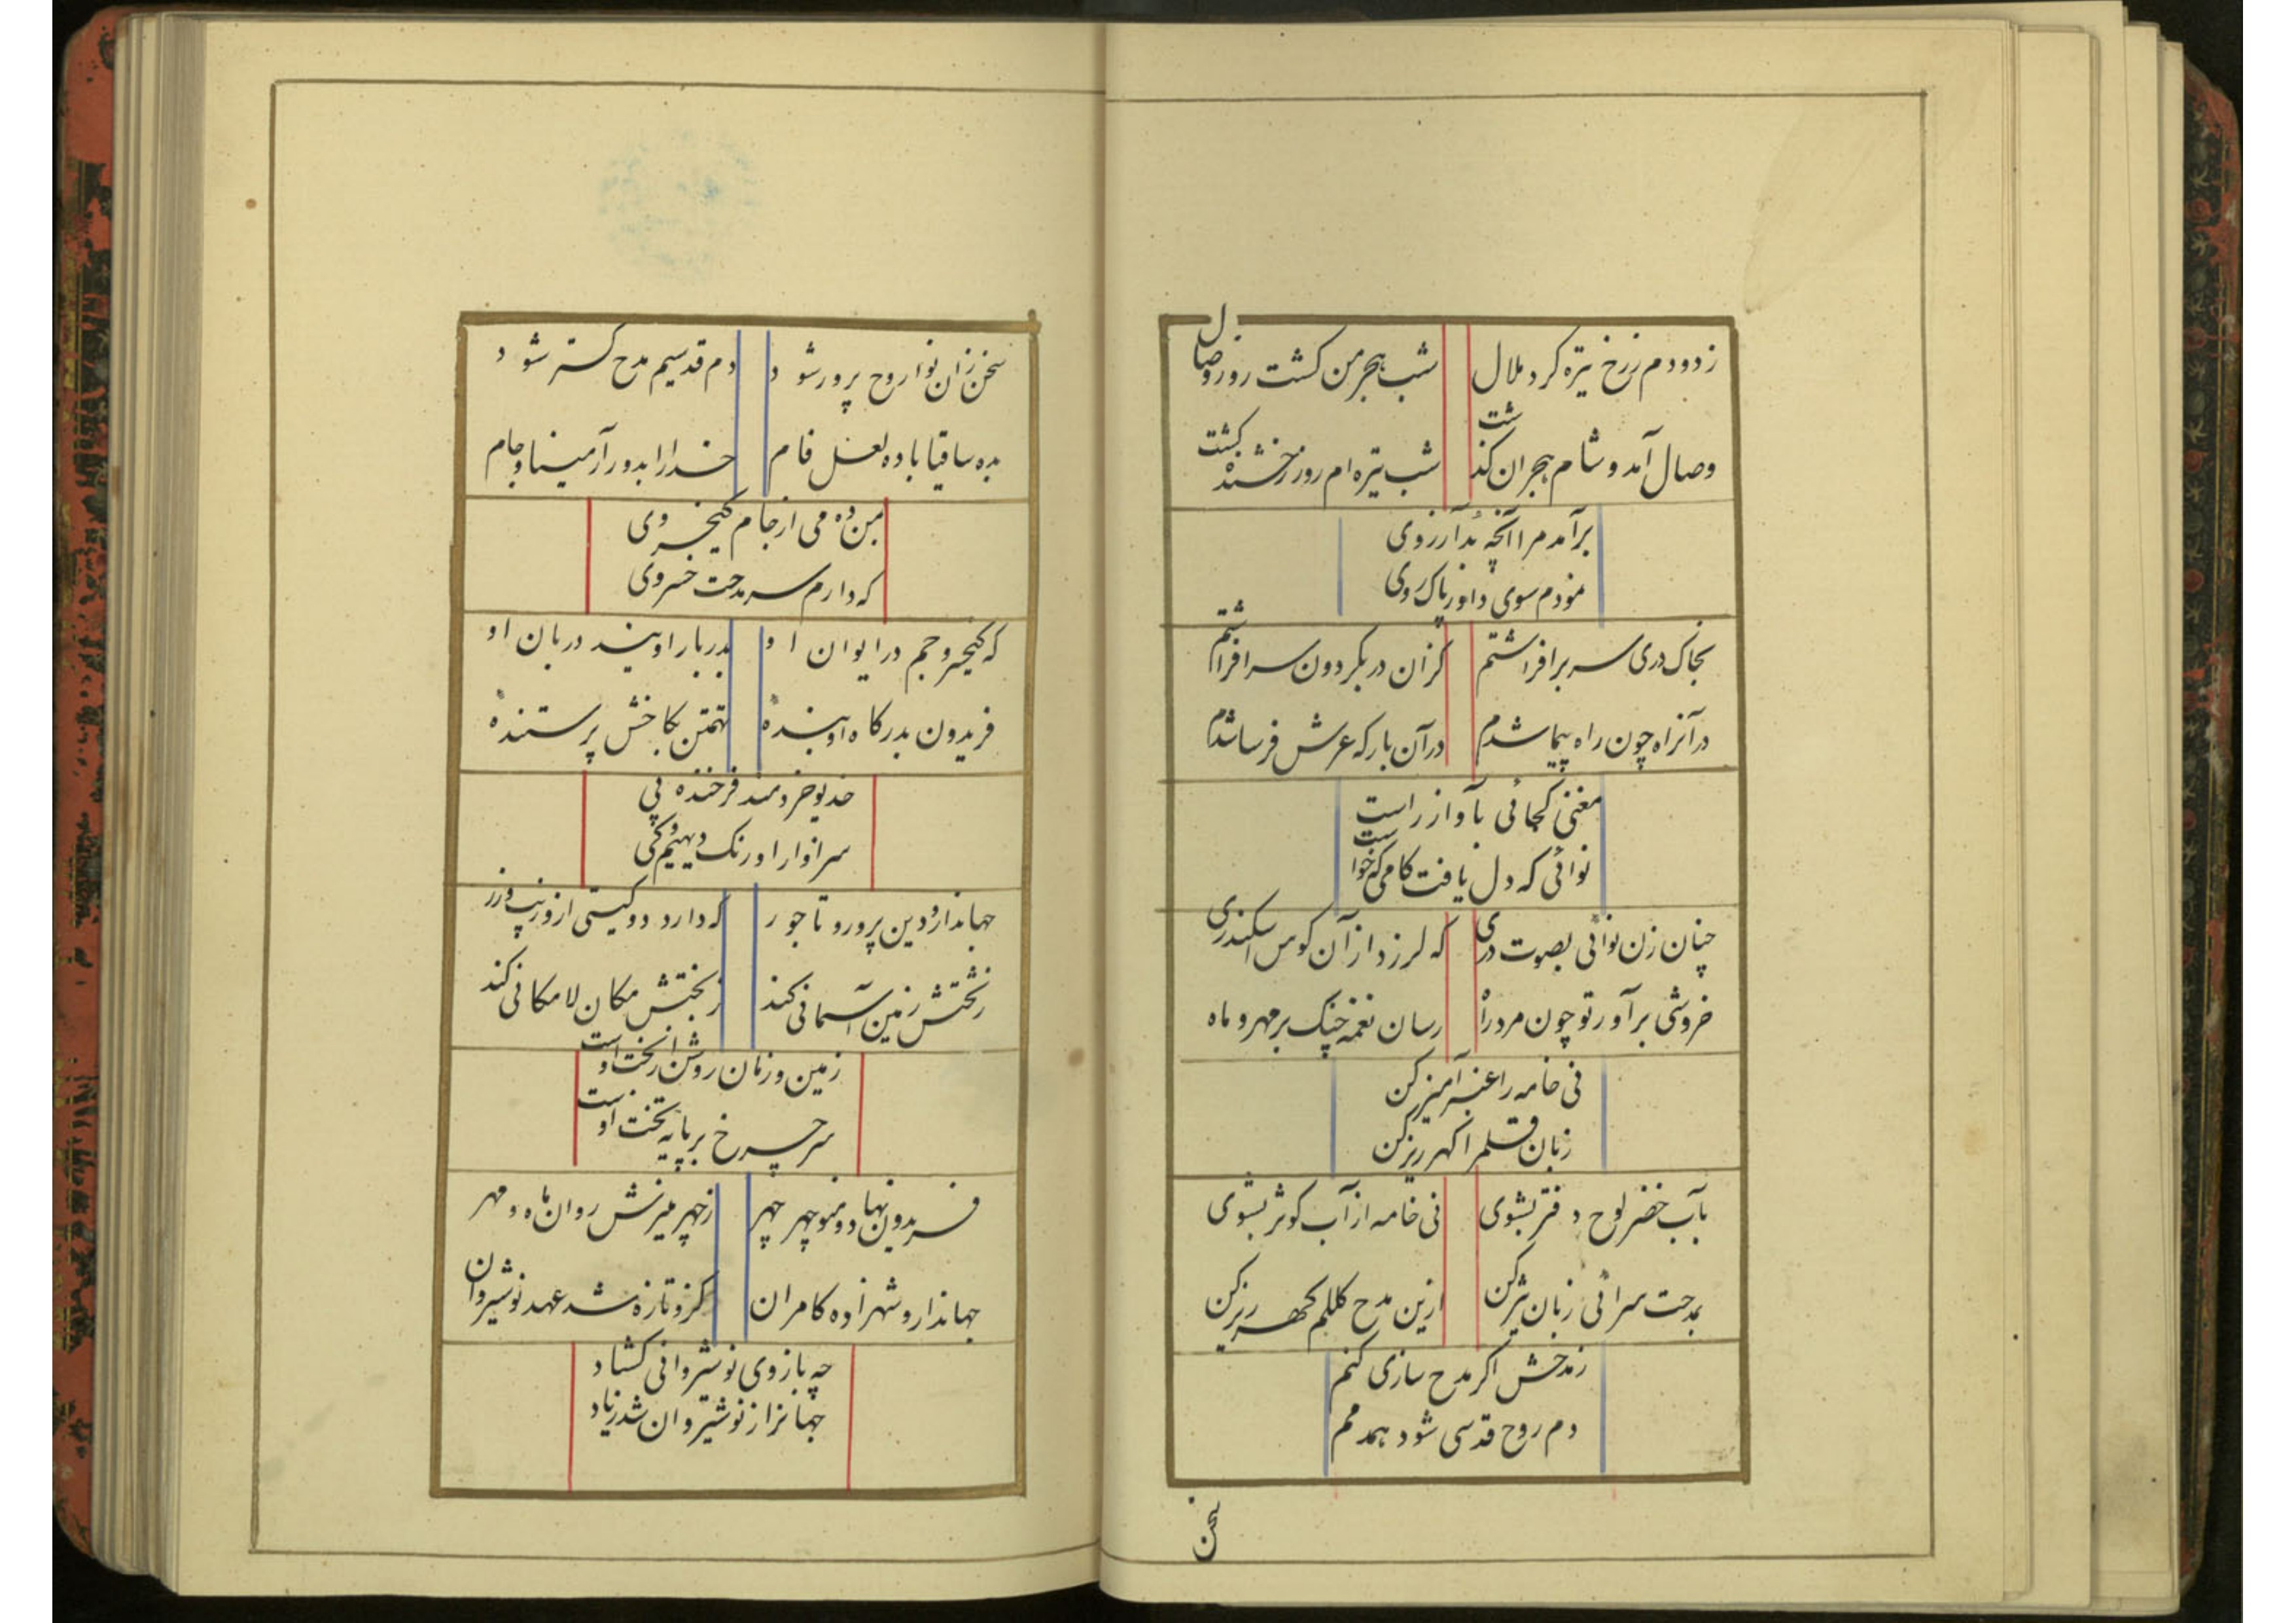 زدودم زرخ تیره کرد ملال شب هجر من کشت روز وصال
وصال آمد و شام هجران کذشت شب تیره ام روز رخشنده کشت
برآمد مرا آنچه بد آرزوی
نمودم سوی داور پاک روی
بخاک دری سر برافراشتم کزان در بکردون سر افراشتم
در آنراه چون راه پیما شدم در آن بارکه عرش فرسا شدم
مغنی کجائی بآواز راست
نوائی که دل یافت کامی که خواست
چنان زن نوائی بصوت دری که لرزد از آن کوس اسکندری
خروشی برآور تو چون مرد راه رسان نغمه چنک بر مهر و ماه
نی خامه را عنبرآمیز کن
زبان قلم را کهر ریز کن
بآب خضر لوح دفتر بشوی نی خامه از آب کوثر بشوی
بمدحت سرائی زبان تیز کن ازین مدح کلکم کهر ریز کن
زمدحش اکر مدح سازی کنم
دم روح قدسی شود همدمم
سخن
سخن زان نوا روح پرور شود دم قدسیم مدح کستر شود
بده ساقیا باده لعل فام خدا را بدور آر مینا و جام
بمن ده می از جام کیخسروی
که دارم سر مدحت خسروی
که کیخسرو جم در ایوان او بدربار اویند دربان او
فریدون بدرکاه او بنده تهمتن بکاخش پرستنده
خدیو خردمند فرخنده پی
سزاوار اورنک و دیهیم کی
جهاندار و دین پرور و تاجور که دارد دو کیتی ازو زیب و زر
زتختش زمین آسمانی کند زبختش مکان لامکانی کند
زمین و زمان روشن از بخت اوست
سر چرخ بر پایه تخت اوست
فریدون نهاد و منوچهر چهر زچهر منیرش روان ماه و مهر
جهاندار و شهزاده کامران کزو تازه شد عهد نوشیروان
چه بازوی نوشیروانی کشاد
جهانرا ز نوشیروان شد زیاد